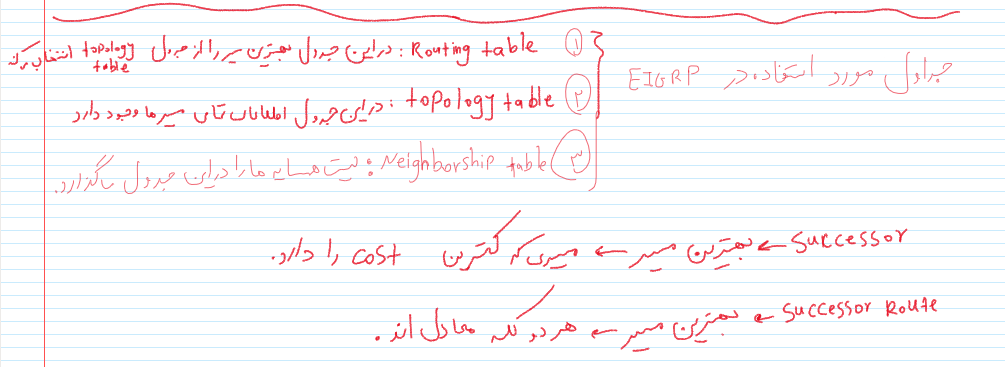 جداول مورد استفاده در EIGRP
① Routing table : در این جدول بهترین مسیر را از جدول topology table انتخاب میکند
② topology table : در این جدول اطلاعات تمامی مسیرها وجود دارد
③ Neighborship table : لیست همسایه ها را در این جدول میگذارد.
Successor ← بهترین مسیر ← مسیری که کمترین cost را دارد.
Successor Route ← بهترین مسیر ← هر دو کلمه معادل اند.